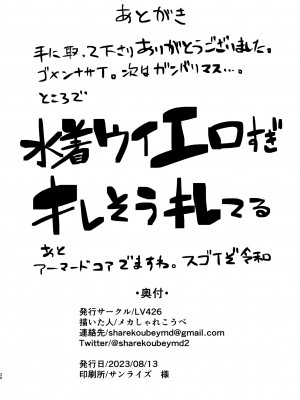 あとがき
手に取って下さりありがとうございました。
ゴメンナサイ。次はガンバリマス…。
ところで
水着ウイエロすぎ
キレそうキレてる
あと
アーマードコアでますね。スゴイぜ令和
・奥付・
発行サークル/LV426
描いた人/メカしゃれこうべ
連絡先/sharekoubeymd@gmail.com
Twitter/@sharekoubeymd2
発行日/2023/08/13
印刷所/サンライズ 様